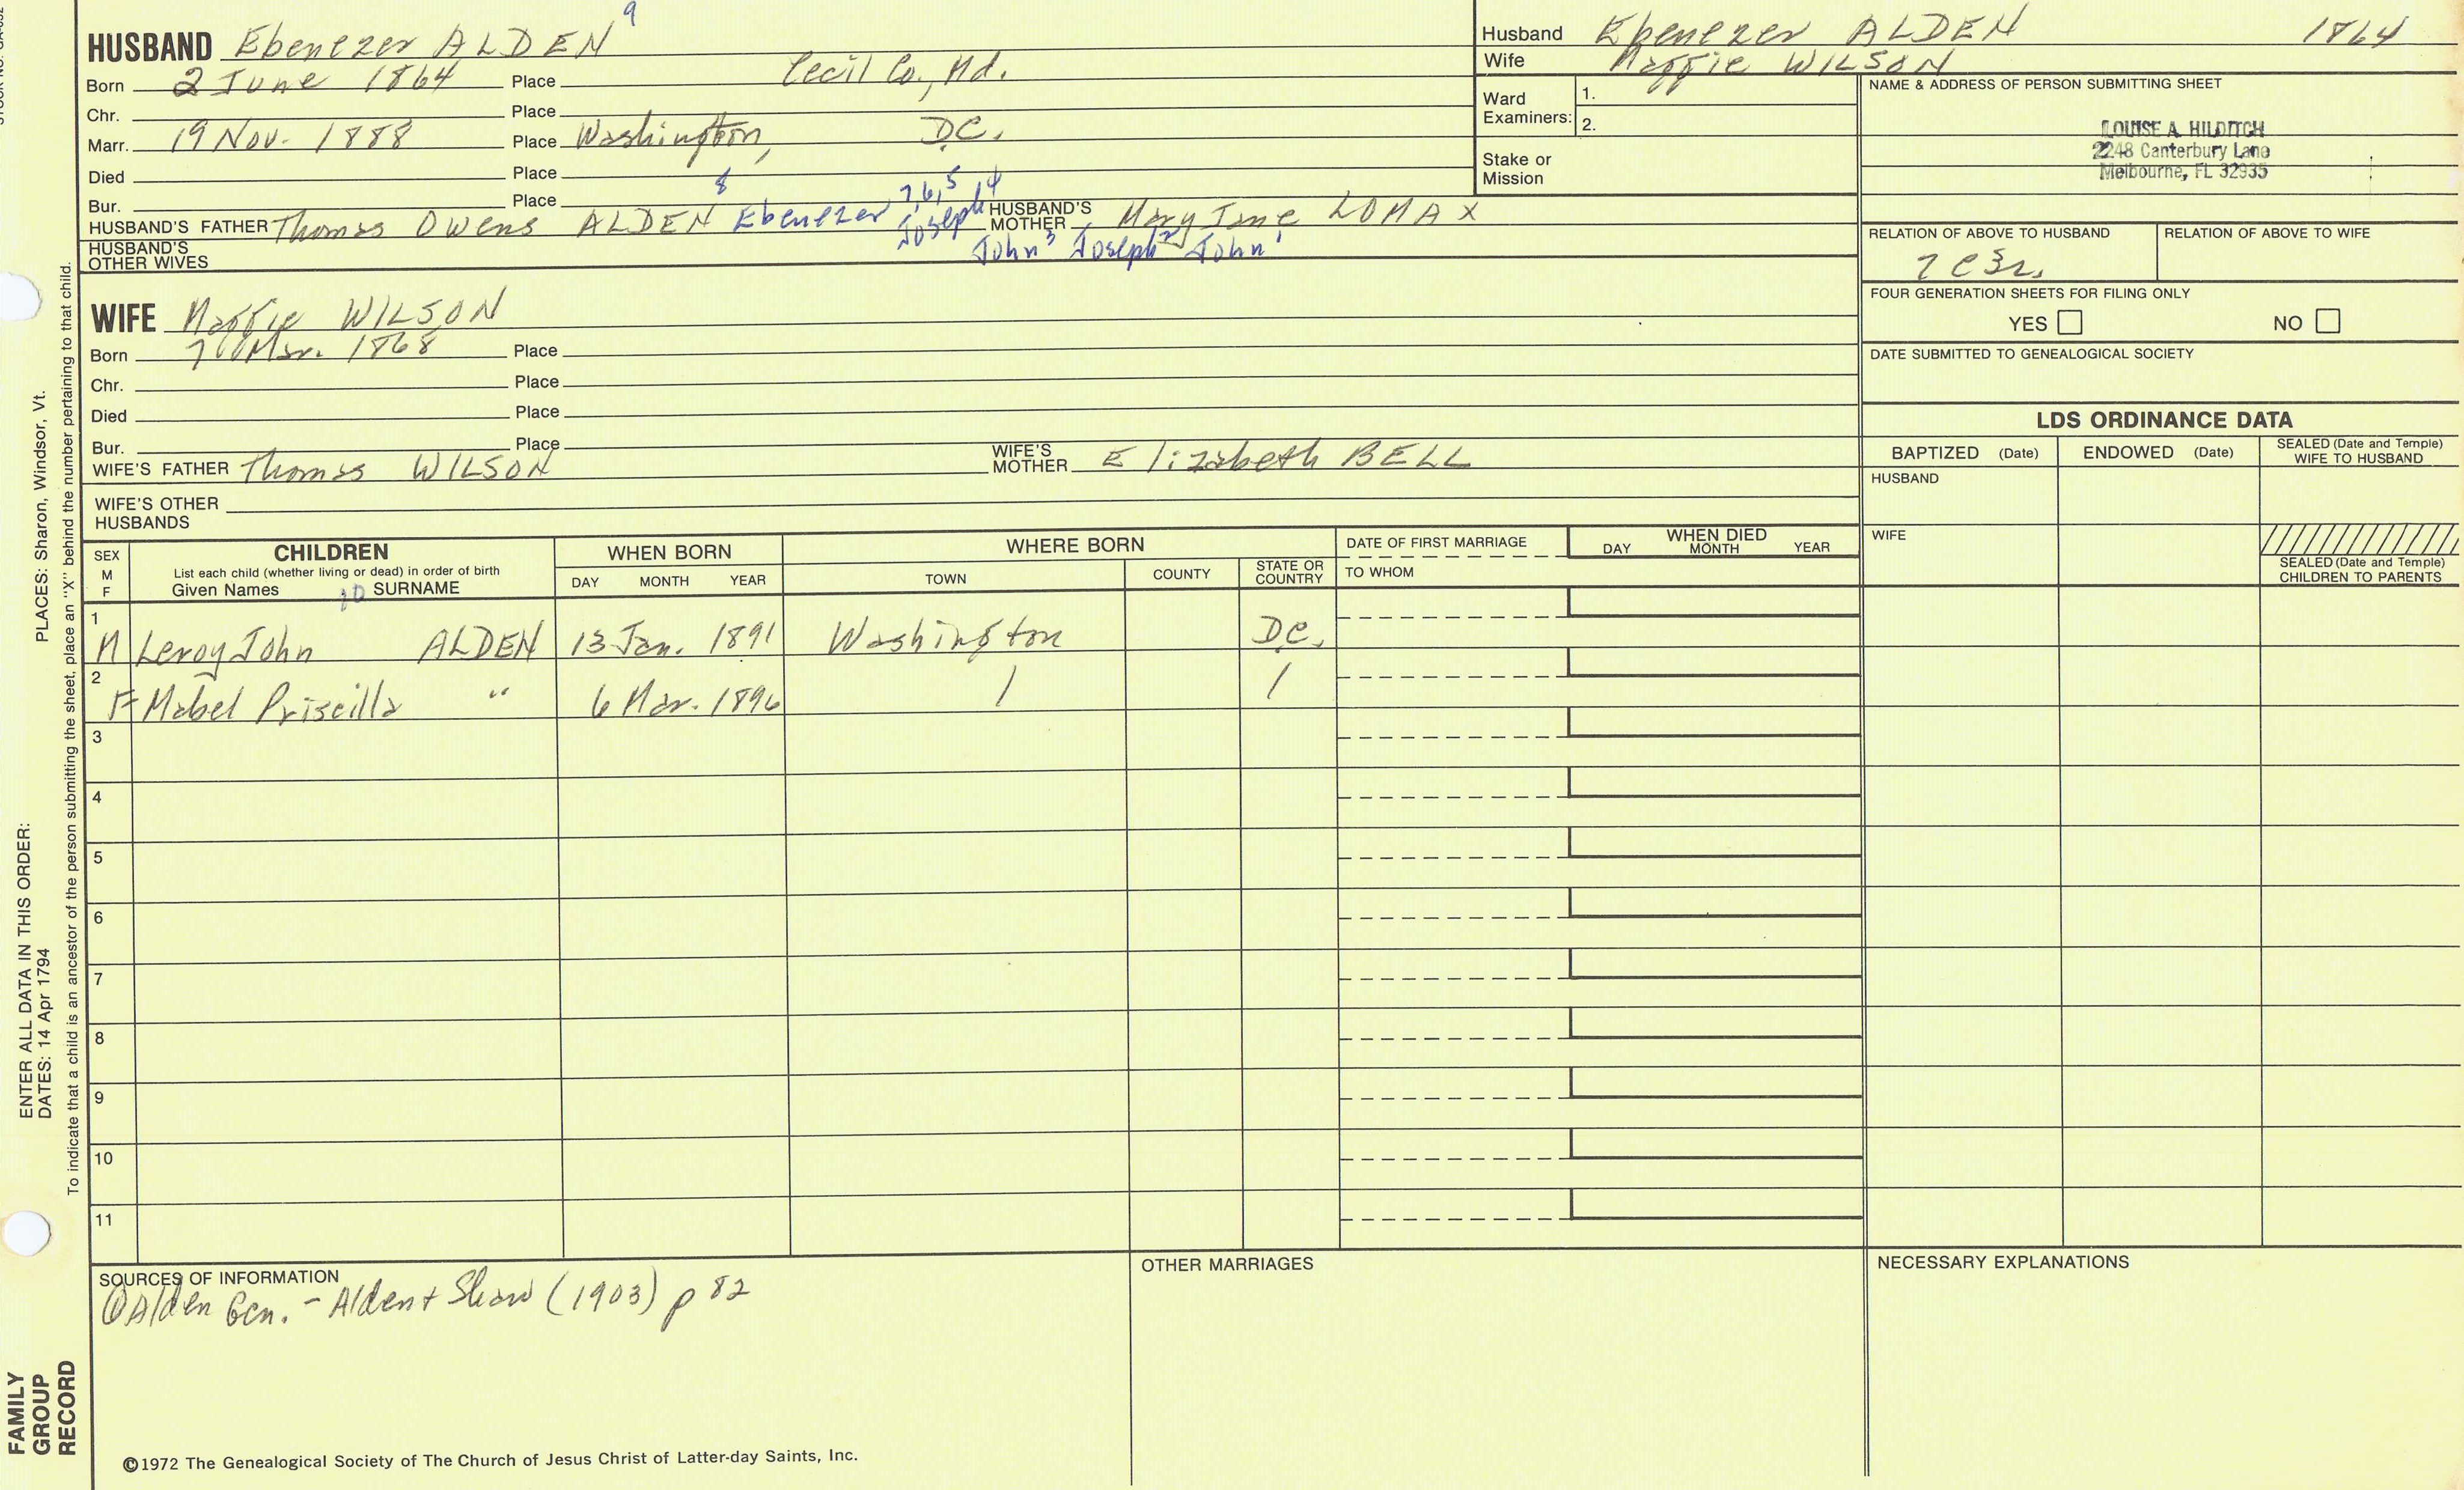 HUSBAND Ebenezer ALDEN 9
Born 2 June 1864 Place Cecil Co., Md.
Chr. Place
Marr. 19 Nov. 1888 Place Washington, D.C.
Died Place
Bur. Place
HUSBAND'S FATHER Thomas Owens ALDEN 8 Ebenezer 7,6,5 Joseph 4 John 3 Joseph 2 John 1 HUSBAND'S MOTHER Mary Jane LOMAX
HUSBAND'S OTHER WIVES
WIFE Maggie WILSON
Born 7 Mar. 1868 Place
Chr. Place
Died Place
Bur. Place
WIFE'S FATHER Thomas WILSON WIFE'S MOTHER Elizabeth BELL
WIFE'S OTHER HUSBANDS
Husband Ebenezer ALDEN 1864
Wife Maggie WILSON
Ward Examiners: 1.
2.
Stake or Mission
NAME & ADDRESS OF PERSON SUBMITTING SHEET
LOUISE A. HILDITCH
2248 Canterbury Lane
Melbourne, FL 32935
RELATION OF ABOVE TO HUSBAND RELATION OF ABOVE TO WIFE
FOUR GENERATION SHEETS FOR FILING ONLY
YES NO
DATE SUBMITTED TO GENEALOGICAL SOCIETY
LDS ORDINANCE DATA
BAPTIZED (Date) ENDOWED (Date) SEALED (Date and Temple) WIFE TO HUSBAND
HUSBAND
WIFE
SEALED (Date and Temple) CHILDREN TO PARENTS
SEX M F
CHILDREN
List each child (whether living or dead) in order of birth
Given Names 10 SURNAME
WHEN BORN
DAY MONTH YEAR
WHERE BORN
TOWN COUNTY STATE OR COUNTRY
DATE OF FIRST MARRIAGE
TO WHOM
WHEN DIED
DAY MONTH YEAR
1 M Leroy John ALDEN 13 Jan. 1891 Washington D.C.
2 F Mabel Priscilla " 6 Mar. 1896 / /
3
4
5
6
7
8
9
10
11
SOURCES OF INFORMATION
① Alden Gen. - Alden + Shaw (1903) p 82
OTHER MARRIAGES
NECESSARY EXPLANATIONS
©1972 The Genealogical Society of The Church of Jesus Christ of Latter-day Saints, Inc.
ENTER ALL DATA IN THIS ORDER:
DATES: 14 Apr 1794 PLACES: Sharon, Windsor, Vt.
To indicate that a child is an ancestor of the person submitting the sheet, place an "X" behind the number pertaining to that child.
FAMILY
GROUP
RECORD